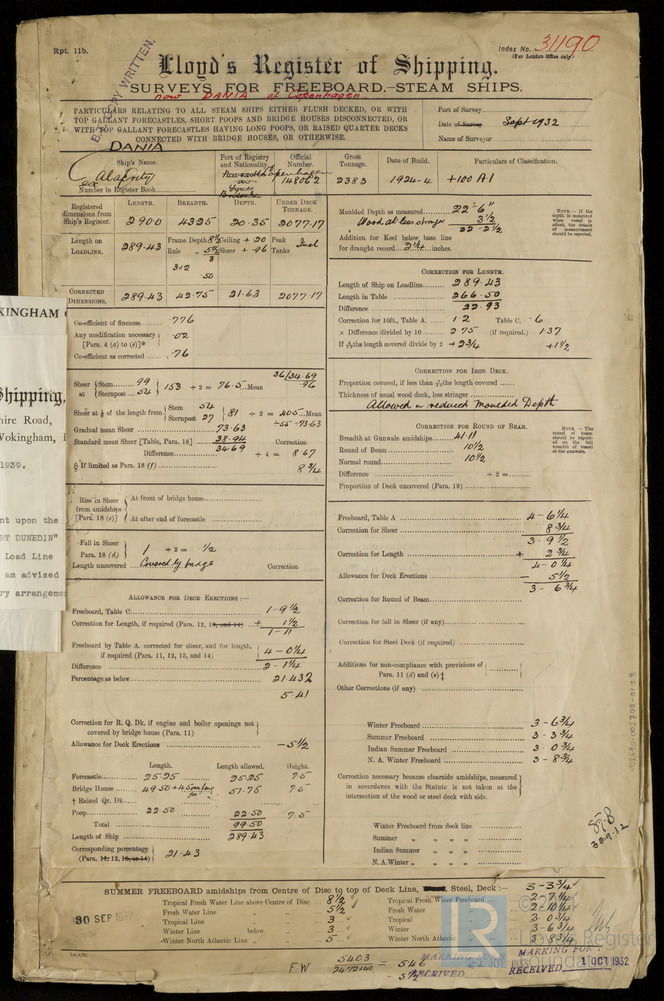 Rpt. 11b.
Index No. 31190
(For London Office only)
Lloyd's Register of Shipping.
SURVEYS FOR FREEBOARD.—STEAM SHIPS.
now DANIA of Copenhagen
PARTICULARS RELATING TO ALL STEAM SHIPS EITHER FLUSH DECKED, OR WITH
TOP GALLANT FORECASTLES, SHORT POOPS AND BRIDGE HOUSES DISCONNECTED, OR
WITH TOP GALLANT FORECASTLES HAVING LONG POOPS, OR RAISED QUARTER DECKS
CONNECTED WITH BRIDGE HOUSES, OR OTHERWISE.
Port of Survey
Date of Survey Sept 1932
Name of Surveyor
DANIA
Ship's Name.
Port of Registry and Nationality.
Official Number.
Gross Tonnage.
Date of Build.
Particulars of Classification.
ex Alacrity
Copenhagen
148062
2383
1924-4
+100 A1
Number in Register Book
Registered dimensions from Ship's Register.
LENGTH. BREADTH. DEPTH. UNDER DECK TONNAGE.
290.0 43.25 20.35 2077.17
Length on LOADLINE. 289.43
Frame Depth 8½ Ceiling + .20 Peak
Rule „ 5½ Sheer + .96 Tanks Incl
3
3/12
.50
CORRECTED DIMENSIONS. 289.43 42.75 21.63 2077.17
Moulded Depth as measured 22'-6"
Wood at less stringer 3½
22-2½
Addition for Keel below base line
for draught record 2¼ inches.
NOTE.—If the depth is measured when vessel is afloat, the details of measurement should be reported.
Co-efficient of fineness .776
Any modification necessary [Para. 4 (a) to (e)]* .02
Co-efficient as corrected .76
CORRECTION FOR LENGTH.
Length of Ship on Loadline 289.43
Length in Table 266.50
Difference 22.93
Correction for 10ft., Table A. 1.2 Table C. .6
× Difference divided by 10 2.75 (if required.) 1.37
If 6/10ths length covered divide by 2 + 2¾ +1½
Sheer at Stem 99 Sternpost 54 153 ÷ 2 = 76.5 Mean
36/34.69
.96
Sheer at ⅛ of the length from Stem 54 Sternpost 27 81 ÷ 2 = 40.5 Mean
÷.55 = 73.63
Gradual mean Sheer 73.63
Standard mean Sheer [Table, Para. 18] 38.94 Correction
Difference 34.69 ÷ 4 = 8.67
§ If limited as Para. 18 (f) 8¾
CORRECTION FOR IRON DECK.
Proportion covered, if less than 7/10ths length covered
Thickness of usual wood deck, less stringer
Allowed in reduced Moulded Depth
CORRECTION FOR ROUND OF BEAM.
Breadth at Gunwale amidships 41.11
Round of Beam 10½
Normal round 10½
Difference ÷ 2 =
Proportion of Deck uncovered (Para. 19)
NOTE.—The round of beam should be reported on the full breadth of vessel at the gunwale.
Rise in Sheer from amidships [Para. 18 (e)]
At front of bridge house
At after end of forecastle
Fall in Sheer Para. 18 (d) 1 ÷ 2 = ½
Length uncovered Covered by bridge Correction
Freeboard, Table A 4-6¼
Correction for Sheer 8¾
3-9½
Correction for Length + 2¾
4-0¼
Allowance for Deck Erections − 5½
3-6¾
Correction for Round of Beam
Correction for fall in Sheer (if any)
Correction for Steel Deck (if required)
Additions for non-compliance with provisions of Para. 11 (d) and (e) ‡
Other Corrections (if any)
ALLOWANCE FOR DECK ERECTIONS:—
Freeboard, Table C 1-9½
Correction for Length, if required (Para. 12, 13, and 14) + 1½
1-11
Freeboard by Table A. corrected for sheer, and for length, if required (Para. 11, 12, 13, and 14) 4-0¼
Difference 2-1¼
Percentage as below 21.43%
5.41
Correction for R. Q. Dk. if engine and boiler openings not covered by bridge house (Para. 11)
Allowance for Deck Erections −5½
Length. Length allowed. Height.
Forecastle 25.25 25.25 7.5
Bridge House 49.50 51.75 7.5
† Raised Qr. Dk.
Poop 22.50 22.50 7.5
Total 99.50
Length of Ship 289.43
Corresponding percentage (Para. 11, 12, 13, or 14) 21.43
Winter Freeboard 3-6¾
Summer Freeboard 3-3¾
Indian Summer Freeboard 3-0¾
N. A. Winter Freeboard 3-8¾
Correction necessary because clearside amidships, measured in accordance with the Statute is not taken at the intersection of the wood or steel deck with side.
Winter Freeboard from deck line
Summer „ „ „
Indian Summer „ „ „
N. A. Winter „ „ „
SUMMER FREEBOARD amidships from Centre of Disc to top of Deck Line, Wood, Steel, Deck:— 3-3¾
Tropical Fresh Water Line above Centre of Disc 8½
Fresh Water Line „ 5½
Tropical Line „ 3
Winter Line below „ 3
Winter North Atlantic Line „ 5
Tropical Fresh Water Freeboard 2-7¼
Fresh Water „ 2-10¼
Tropical „ 3-0¾
Winter „ 3-6¾
Winter North Atlantic „ 3-8¾
30 SEP 1932
F.W
5403
= 546
5½
MARKING FORM
RECEIVED
MARKING FORM
RECEIVED 1 OCT 1932
KINGHAM
Shipping,
hire Road,
Wokingham,
1939.
nt upon the
RT DUNEDIN"
Load Line
am advised
ry arrangemen
LR
Lloyd's Register
Foundation